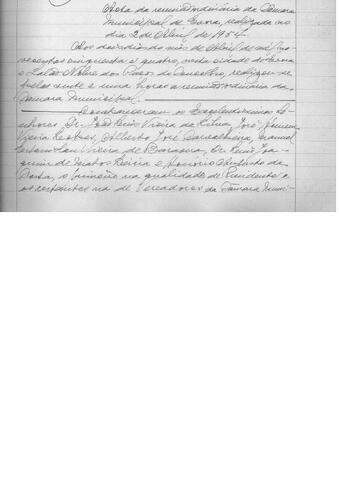 Acta da reunião ordinária da Câmara
Municipal de Évora, realizada no
dia 2 de Abril de 1954.
Aos dois dias do mês de Abril de mil no-
vecentos cinquenta e quatro, nesta cidade de Évora
e Salão Nobre dos Paços do Concelho, realizou-se
pelas vinte e uma horas a reunião ordinária da
Câmara Municipal.
Compareceram os Excelentíssimos Se-
nhores Dr. João Luís Vieira da Silva, José
Vieira Alberto José Manuel
Vieira de Barahona, Dr.
quim de Matos e António da
Costa, o primeiro na qualidade de Presidente e
os restantes na de Vereadores da Câmara Muni-